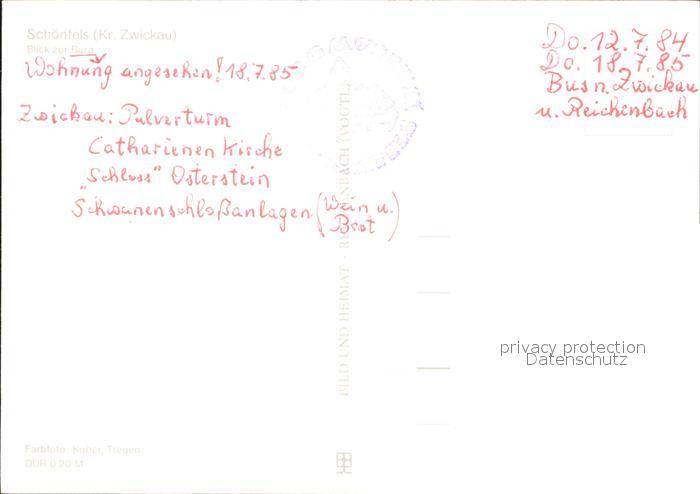 Schönfels (Kr. Zwickau)
Blick zur Burg
Wohnung angesehen! 18.7.85
Zwickau: Pulverturm
Catharienen Kirche
„Schloss" Osterstein
Schwanenschloßanlagen (Wein u.
Brot)
Do. 12.7.84
Do. 18.7.85
Bus n. Zwickau
u. Reichenbach
BILD UND HEIMAT · REICHENBACH (VOGTL)
privacy protection
Datenschutz
Farbfoto: Kober, Treuen
DDR 0,20 M